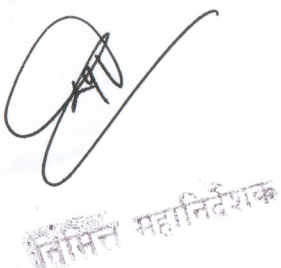 निमित्त महानिर्देशक